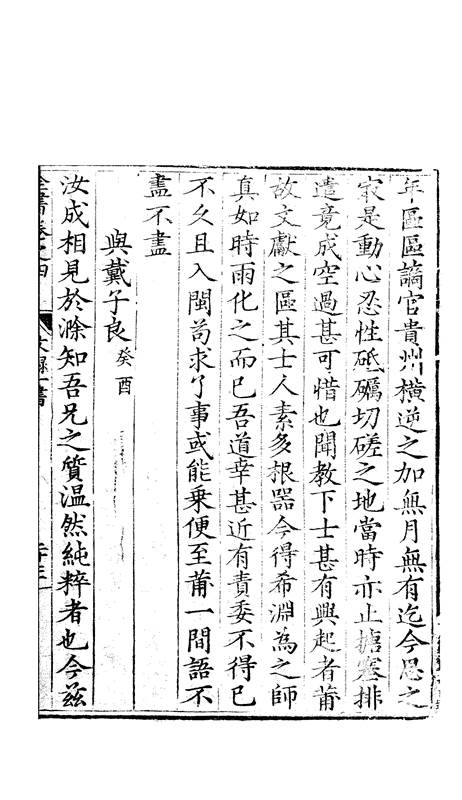 年區區謫官貴州橫逆之加無月無有迄今思之
㝡是動心忍性砥礪切磋之地當時亦止搪塞排
遣竟成空過甚可惜也聞教下士甚有興起者莆
故文獻之區其士人素多根器今得希淵為之師
真如時雨化之而已吾道幸甚近有責委不得已
不久且入閩苟求了事或能乗便至莆一間語不
盡不盡
與戴子良癸酉
汝成相見於滁知吾兄之質温然純粹者也今兹
全書卷之四
文錄一書